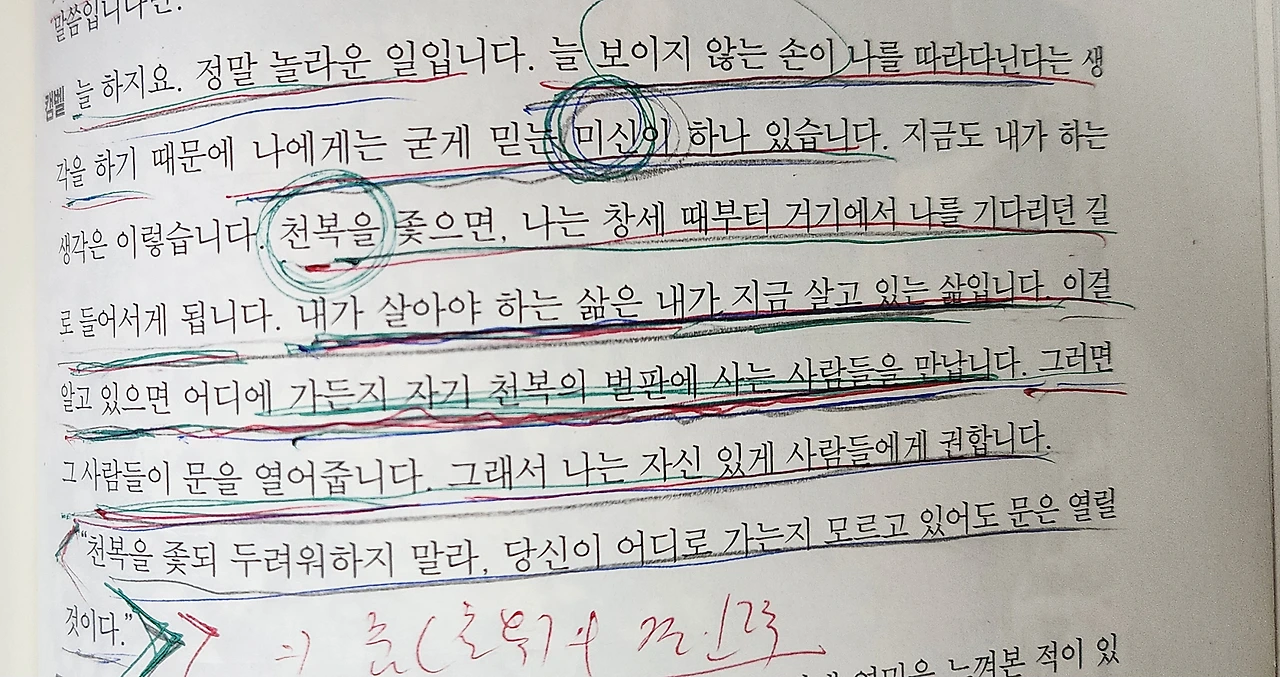 말씀입니다만.
캠벨 늘 하지요. 정말 놀라운 일입니다. 늘 보이지 않는 손이 나를 따라다닌다는 생
각을 하기 때문에 나에게는 굳게 믿는 미신이 하나 있습니다. 지금도 내가 하는
생각은 이렇습니다. 천복을 좇으면, 나는 창세 때부터 거기에서 나를 기다리던 길
로 들어서게 됩니다. 내가 살아야 하는 삶은 내가 지금 살고 있는 삶입니다. 이걸
알고 있으면 어디에 가든지 자기 천복의 벌판에 사는 사람들을 만납니다. 그러면
그 사람들이 문을 열어줍니다. 그래서 나는 자신 있게 사람들에게 권합니다.
“천복을 좇되 두려워하지 말라, 당신이 어디로 가는지 모르고 있어도 문은 열릴
것이다.”
느껴본 적이 있